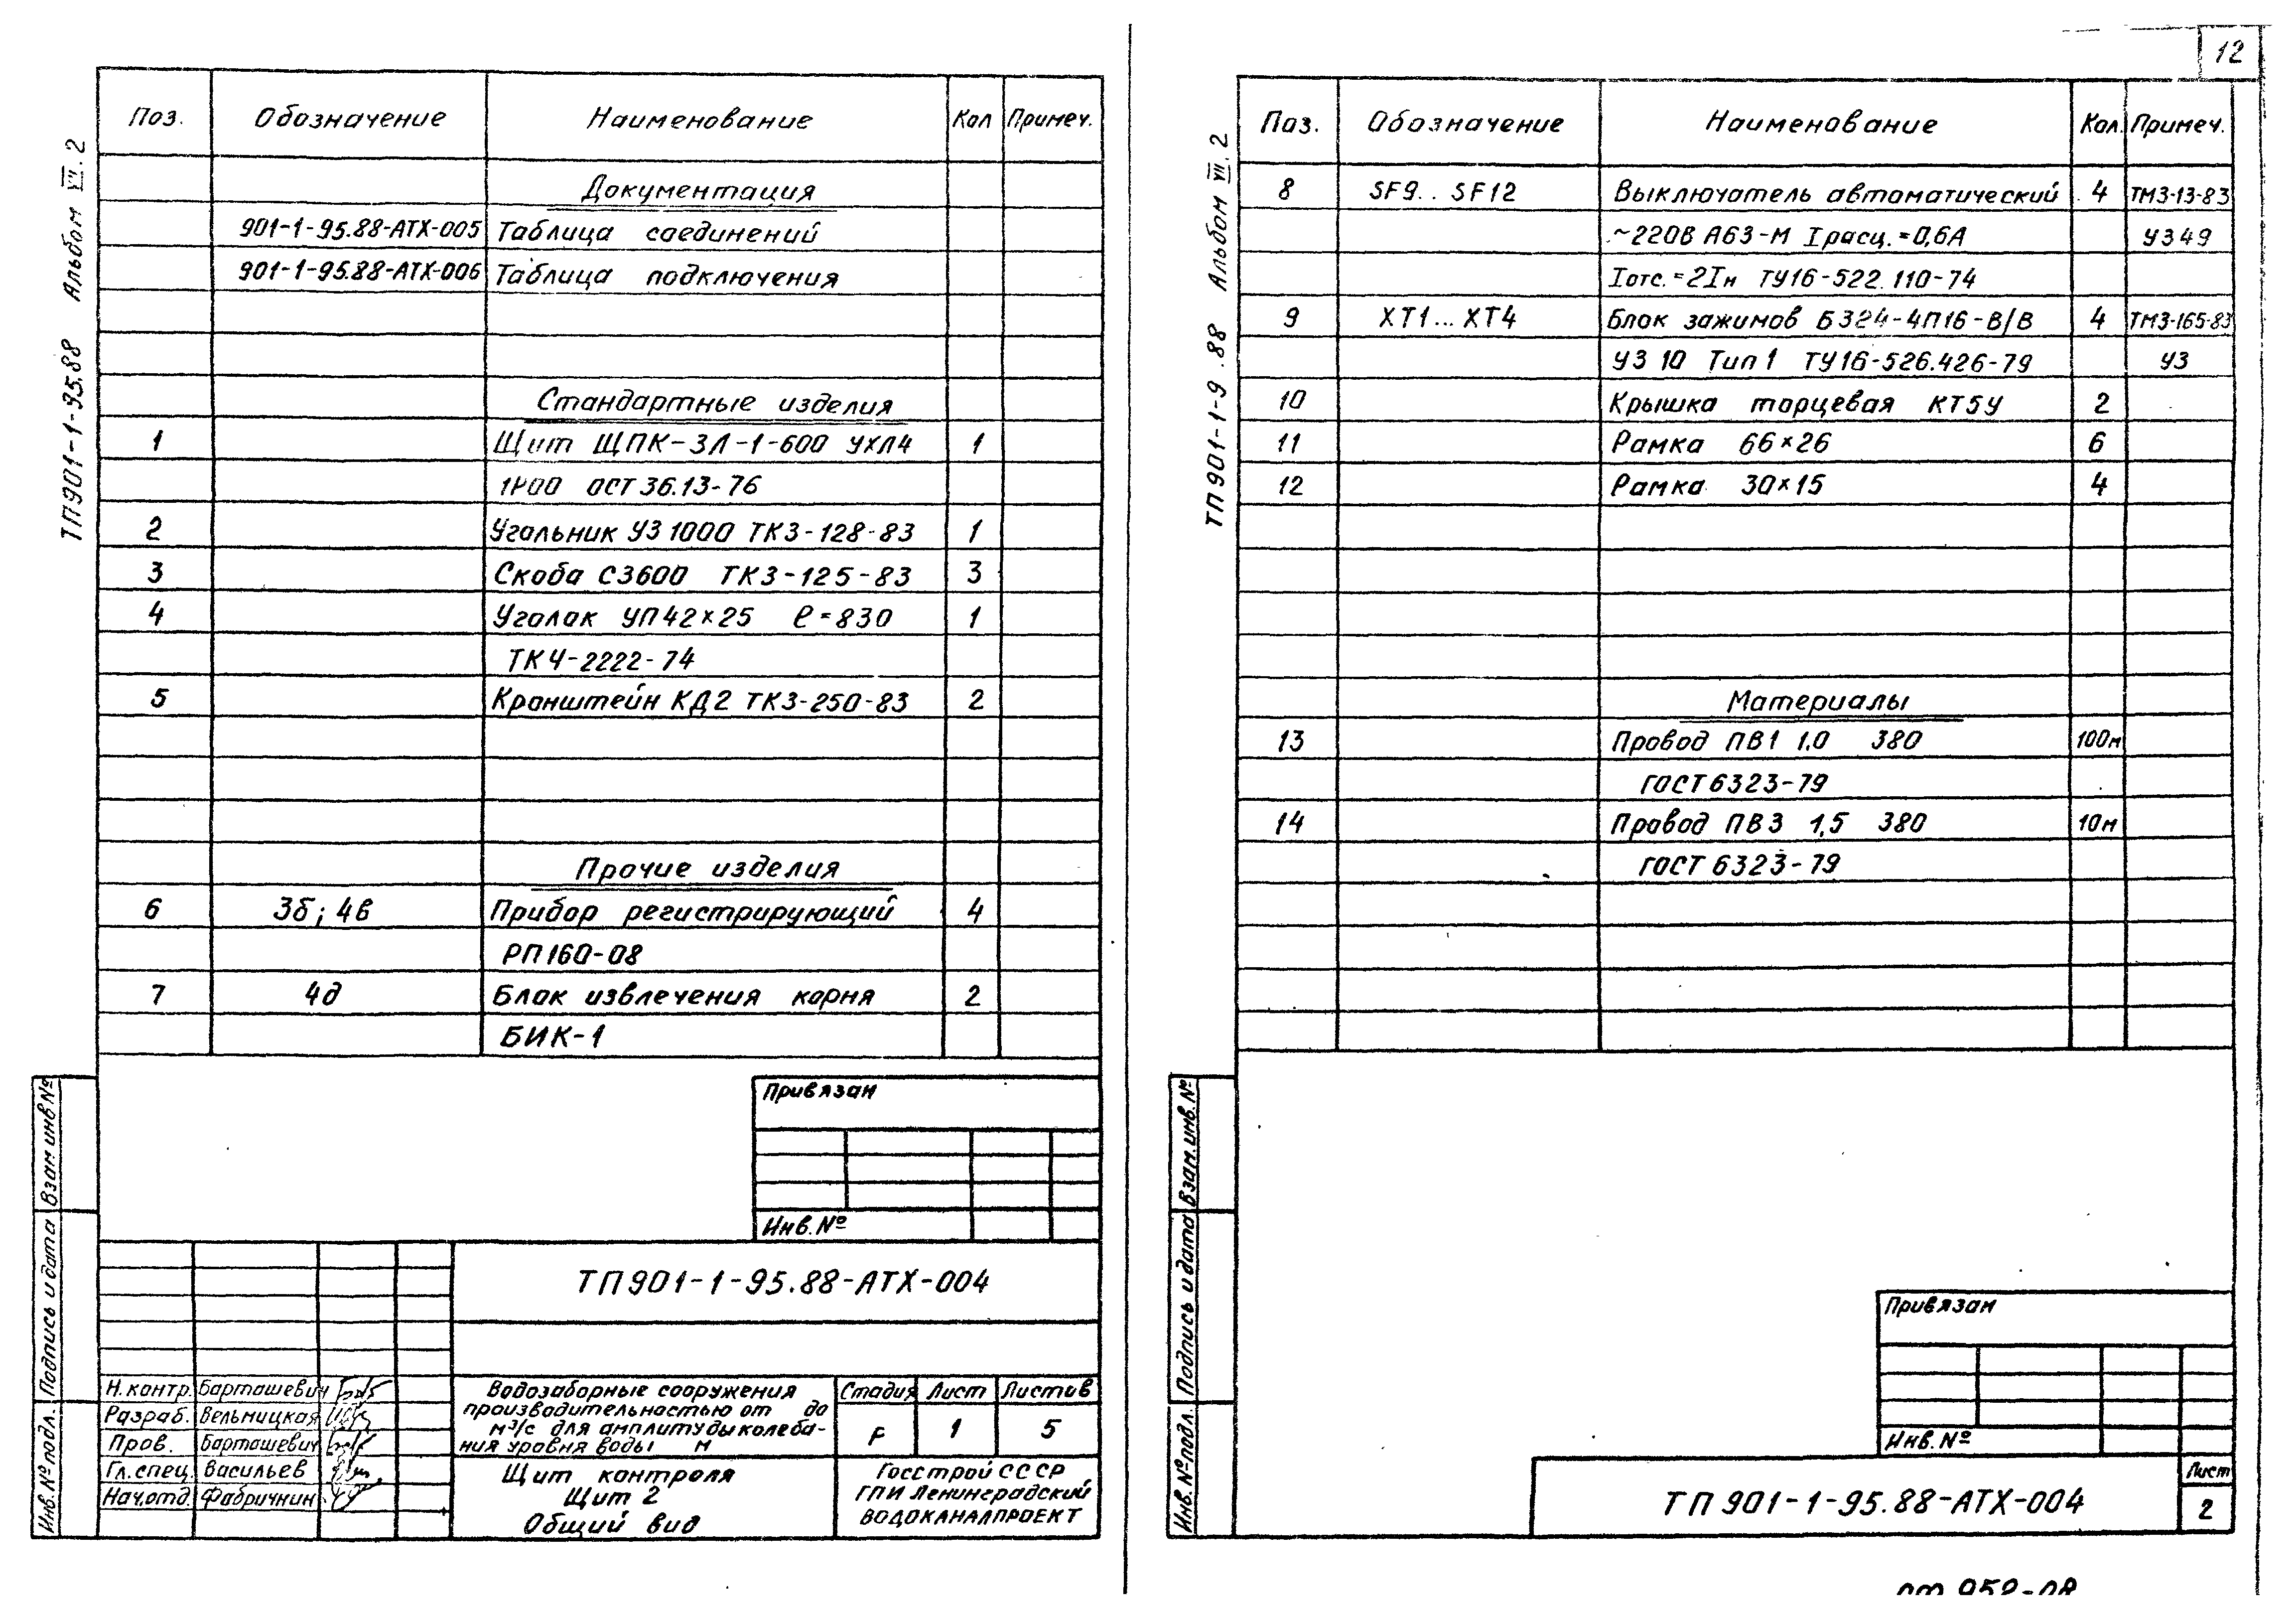 12
ТП901-1-95.88 Альбом VII.2
Поз. Обозначение Наименование Кол Примеч.
Документация
901-1-95.88-АТХ-005 Таблица соединений
901-1-95.88-АТХ-006 Таблица подключения
Стандартные изделия
1 Щит ЩПК-3Л-1-600 УХЛ4 1
1Р00 ОСТ 36.13-76
2 Угольник УЗ 1000 ТК3-128-83 1
3 Скоба С3600 ТК3-125-83 3
4 Уголок УП 42×25 ℓ=830 1
ТК4-2222-74
5 Кронштейн КД2 ТК3-250-83 2
Прочие изделия
6 3б; 4в Прибор регистрирующий 4
РП160-08
7 4д Блок извлечения корня 2
БИК-1
Привязан
Инв.№
Взам инв №
Подпись и дата
Инв.№ подл.
ТП901-1-95.88-АТХ-004
Н.контр. Барташевич
Разраб. Вельницкая
Пров. Барташевич
Гл.спец. Васильев
Нач.отд. Фабричнин
Водозаборные сооружения
производительностью от до
м³/с для амплитуды колеба-
ния уровня воды м
Стадия Лист Листов
Р 1 5
Щит контроля
Щит 2
Общий вид
Госстрой СССР
ГПИ Ленинградский
ВОДОКАНАЛПРОЕКТ
ТП901-1-9 .88 Альбом VII.2
Поз. Обозначение Наименование Кол. Примеч.
8 SF9.. SF12 Выключатель автоматический 4 ТМ3-13-83
~220В А63-М Iрасц.=0,6А У349
Iотс.=2Iн ТУ16-522.110-74
9 ХТ1... ХТ4 Блок зажимов Б324-4П16-В/В 4 ТМ3-165-83
У3 10 Тип 1 ТУ16-526.426-79 У3
10 Крышка торцевая КТ5У 2
11 Рамка 66×26 6
12 Рамка 30×15 4
Материалы
13 Провод ПВ1 1,0 380 100м
ГОСТ 6323-79
14 Провод ПВ3 1,5 380 10м
ГОСТ 6323-79
Взам.инв.№
Подпись и дата
Инв.№ подл.
Привязан
Инв.№
ТП 901-1-95.88-АТХ-004
Лист
2